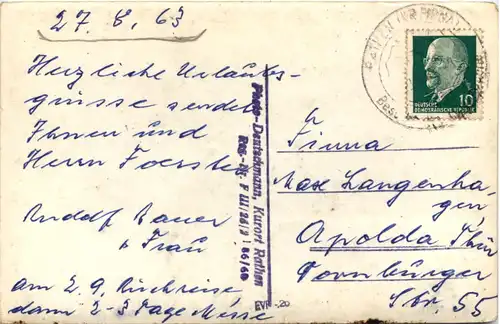 27. 8. 63
Herzliche Urlaubs-
grüsse sendet
Ihnen und
Herrn Foerster
Rudolf Bauer
u Frau
am 2.9. Rückreise
dann 2-3 Tage Messe
Photo-Deutschmann, Kurort Rathen
EVP -,20
RATHEN
DEUTSCHE
DEMOKRATISCHE REPUBLIK
10
Firma
Max Langenha-
gen
Apolda Thür
Dornburger
Str. 55